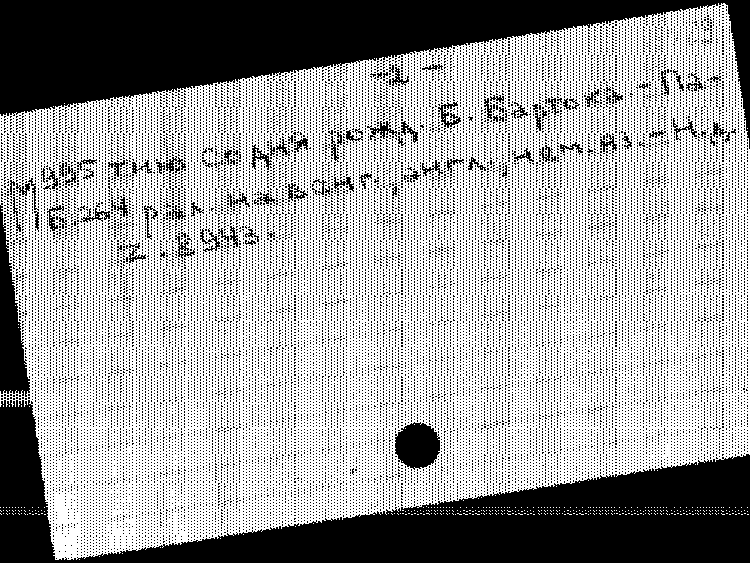 - 2 -
М 995 тию со дня рожд. Б. Бартока. - Па-
Б 264 рал. на венг., англ., нем. яз. - Н.д.
Z. 8943.